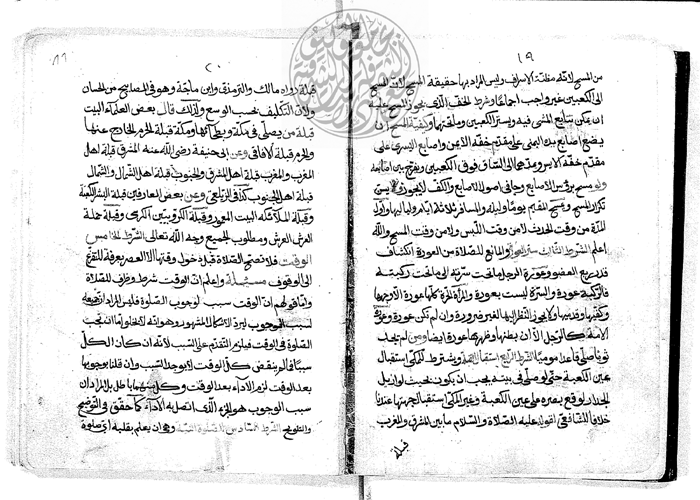 ١٩
من المسح لانه مظنة الاسراف وليس المراد بها حقيقة المسح لان المسح
الى الكعبين غير واجب اجماعا وشرط الخف الذى يجوز المسح عليه
ان يمكن تتابع المشى فيه وستر الكعبين وما تحتها وكيفية المسح ان
يضع اصابع يده اليمنى على مقدم خفه الايمن واصابع اليسرى على
مقدم خفه الايسر ويمدهما الى الساق فوق الكعبين ويفرج بين اصابعه
ولو مسح برؤس الاصابع وجافى اصول الاصابع والكف لا يجوز
تكرار المسح ومسح المقيم يوما وليلة والمسافر ثلاثة ايام ولياليها واول
المدة من وقت الحدث لا من وقت اللبس ولا من وقت المسح والله
اعلم الشرط الثالث ستر العورة والمانع للصلاة من العورة انكشاف
قدر ربع العضو وعورة الرجل ما تحت سرته الى ما تحت ركبته
فالركبة عورة والسرة ليست بعورة والمرأة الحرة كلها عورة الا وجهها
وكفيها وقدميها ولا يجوز النظر اليها لغير ضرورة وان لم تكن عورة وعورة
الامة كالرجل الا ان بطنها وظهرها عورة ايضا ومن لم يجد
ثوبا صلى قاعدا موميا الشرط الرابع استقبال القبلة ويشترط للمكى استقبال
عين الكعبة حتى لو صلى فى بيته يجب ان يكون بحيث لو ازيل
الجدار لوقع بصره على عين الكعبة وغير المكى استقبال جهتها عندنا
خلافا للشافعى لقوله عليه الصلاة والسلام ما بين المشرق والمغرب
قبلة
٢٠
قبلة رواه مالك والترمذى وابن ماجة وهو فى المصابيح من الحسان
ولان التكليف بحسب الوسع ولذلك قال بعض العلماء البيت
قبلة من يصلى فى مكة وبطحائها ومكة قبلة الحرم الخارج عنها
والحرم قبلة الافاقى وعن ابى حنيفة رضى الله عنه المشرق قبلة اهل
المغرب والمغرب قبلة اهل المشرق والجنوب قبلة اهل الشمال والشمال
قبلة اهل الجنوب كذا فى الزيلعى وعن بعض العارفين قبلة البشر الكعبة
وقبلة الملائكة البيت المعمور وقبلة الكروبيين الكرسى وقبلة حملة
العرش العرش ومطلوب الجميع وجه الله تعالى الشرط الخامس
الوقت فلا تصح الصلاة قبل دخول وقتها الا العصر بعرفة للتفرغ
الى الوقوف مسئلة واعلم ان الوقت شرط وظرف للصلاة
واما قولهم ان الوقت سبب لوجوب الصلوة فليس المراد ان جميعه
لسبب الوجوب ليرد الاشكال المشهور وهو انه لا يخلو اما ان تجب
الصلوة فى الوقت فيلزم التقدم على السبب لانه ان كان الكل
سببا فما لم ينقض كل الوقت لا يوجد السبب وان قلنا بوجوبها
بعد الوقت لزم الاداء بعد الوقت وكل منهما باطل بل المراد ان
سبب الوجوب هو الجزء الذى اتصل به الاداء كما حقق فى التوضيح
والتلويح الشرط السادس للصلوة النية وهى ان يعلم بقلبه اى صلوة